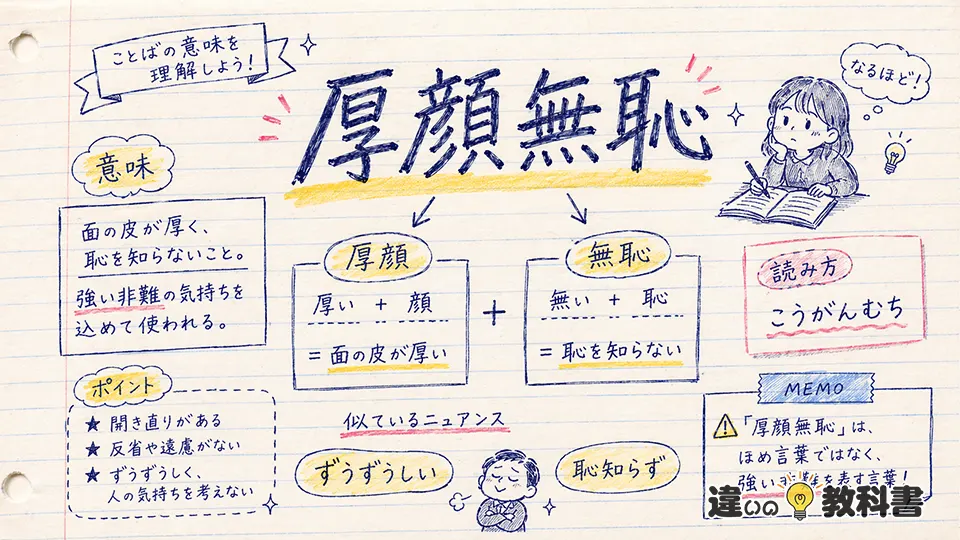 ことばの意味を
理解しよう!
厚顔無恥
なるほど!
意味
面の皮が厚く、
恥を知らないこと。
強い非難の気持ちを
込めて使われる。
厚顔
厚い + 顔
= 面の皮が厚い
+
無恥
無い + 恥
= 恥を知らない
読み方
こうがんむち
ポイント
★ 開き直りがある
★ 反省や遠慮がない
★ ずうずうしく、
人の気持ちを考えない
似ているニュアンス
ずうずうしい
恥知らず
MEMO
「厚顔無恥」は、
ほめ言葉ではなく、
強い非難を表す言葉!
違いの教科書